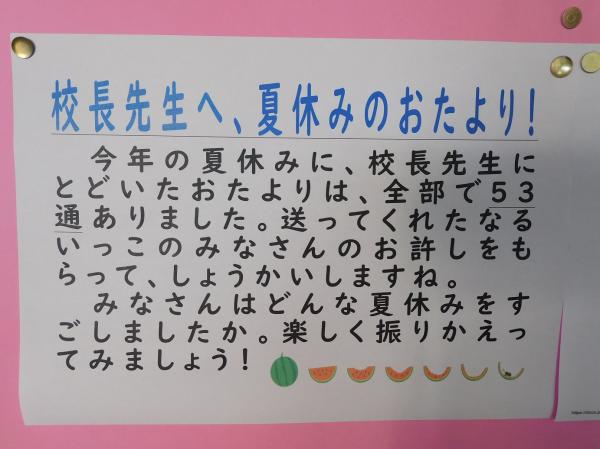 校長先生へ、夏休みのおたより！
今年の夏休みに、校長先生に
とどいたおたよりは、全部で５３
通ありました。送ってくれたなる
いっこのみなさんのお許しをも
らって、しょうかいしますね。
みなさんはどんな夏休みをす
ごしましたか。楽しく振りかえっ
てみましょう！